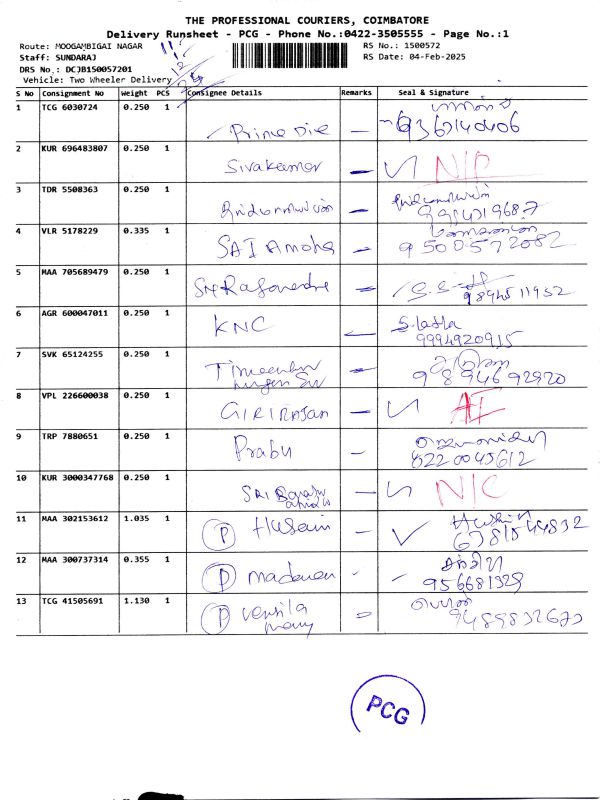 THE PROFESSIONAL COURIERS, COIMBATORE
Delivery Runsheet - PCG - Phone No.:0422-3505555 - Page No.:1
Route: MOOGAMBIGAI NAGAR
RS No.: 1500572
Staff: SUNDARAJ
RS Date: 04-Feb-2025
DRS No.: DCJB150057201
Vehicle: Two Wheeler Delivery
S No Consignment No Weight PCS Consignee Details Remarks Seal & Signature
1 TCG 6030724 0.250 1 Prime Die — 936140406
2 KUR 696483807 0.250 1 Sivakumar — N/P
3 TDR 5508363 0.250 1 — 9984219687
4 VLR 5178229 0.335 1 SAI Amoha — 9500572082
5 MAA 705689479 0.250 1 — 9894511952
6 AGR 600047011 0.250 1 KNC — S. Latha
9994920915
7 SVK 65124255 0.250 1 — 9894692920
8 VPL 226600038 0.250 1 GIRIRAJAN —
9 TRP 7880651 0.250 1 Prabu —
8220045612
10 KUR 3000347768 0.250 1 SRI — N/C
11 MAA 302153612 1.035 1 P Husain — 6381544832
12 MAA 300737314 0.355 1 P madavan — 956681329
13 TCG 41505691 1.130 1 P
9489832673
PCG